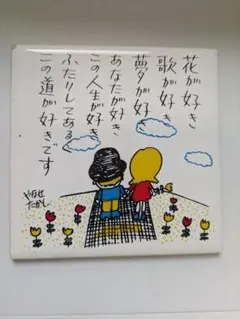 花が好き
歌が好き
夢が好き
あなたが好き
この人生が好き
ふたりしてある
この道が好きです
やなせ
たかし